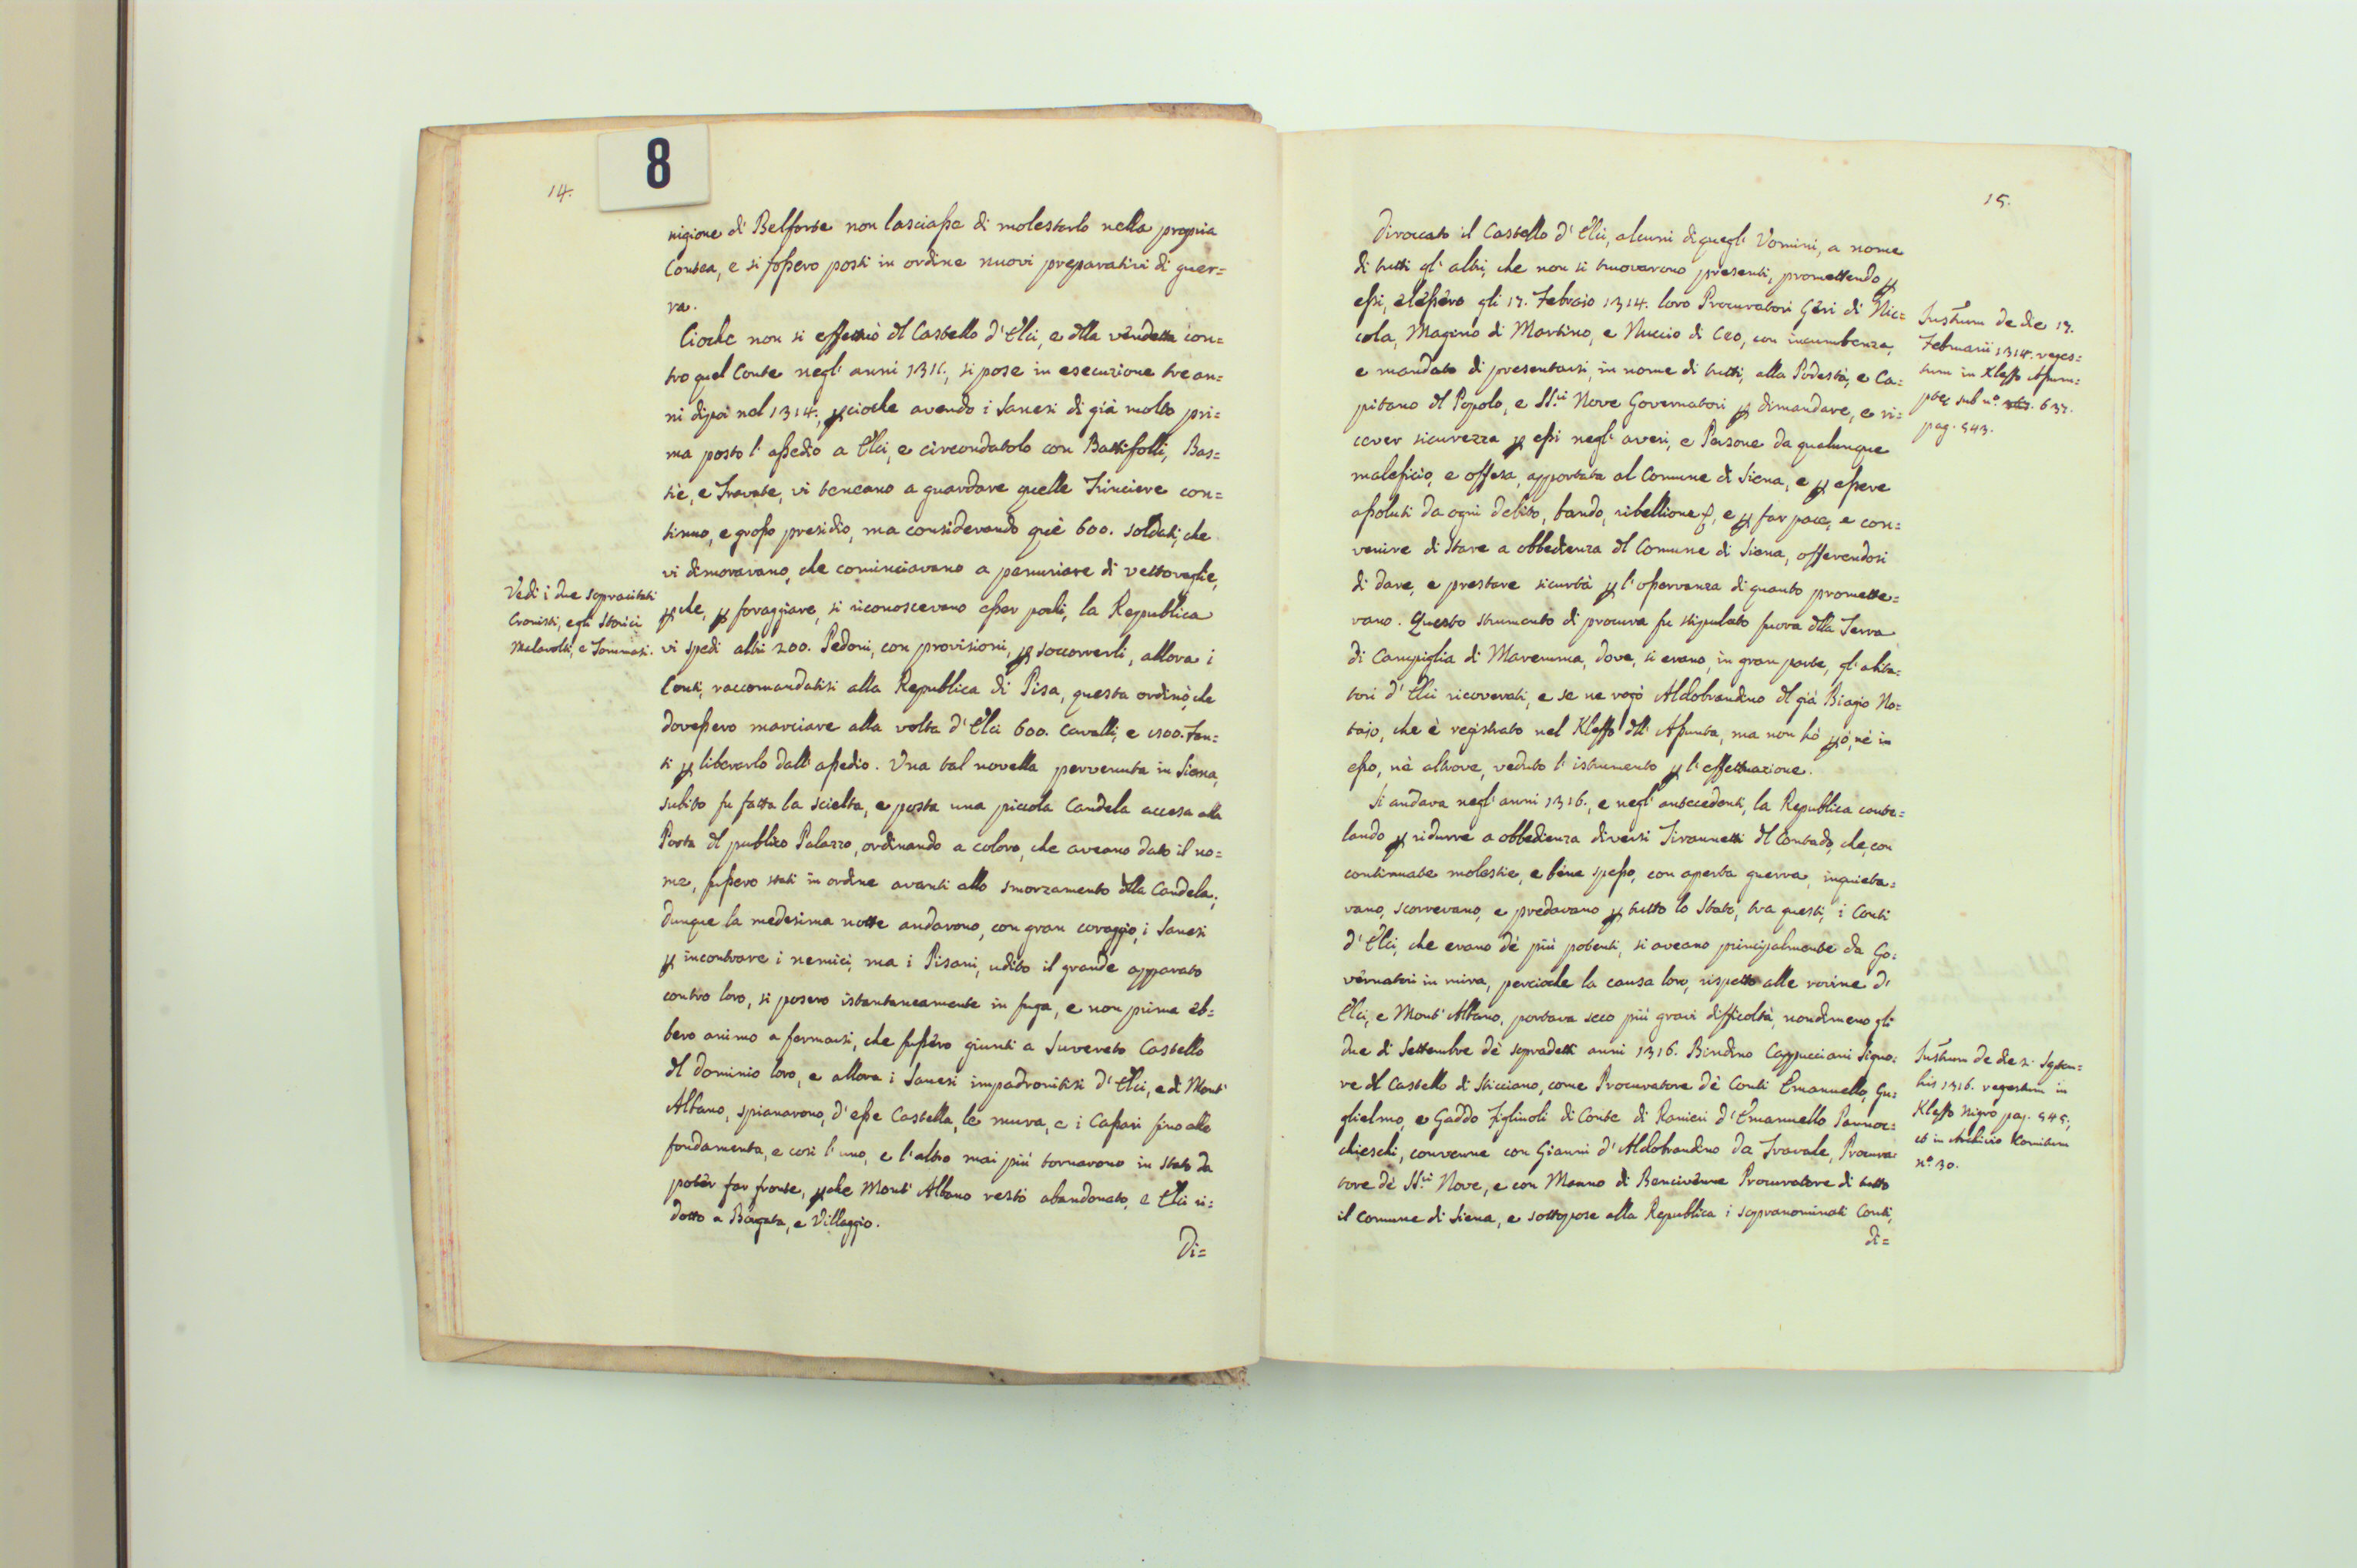 14.
8
nigione di Belforte non lasciasse di molestarlo nella propria
Contea, e si fossero posti in ordine nuovi preparativi di guer=
ra.
Cioche non si effettuò dl Castello d'Elci, e dlla vendetta con=
tro quel Conte negl'anni 1311., si pose in esecuzione tre an=
ni dipoi nel 1314., pcioche avendo i Sanesi di già molto pri=
ma posto l'assedio a Elci, e circondatolo con Battifolli, Bas=
tie, e Travate, vi teneano a guardare quelle Trinciere con=
tinuo, e grosso presidio, ma considerando què 600. soldati, che
vi dimoravano, che cominciavano a penuriare di vettovaglie,
pche, p foraggiare, si riconoscevano esser pochi, la Reppublica
vi spedì altri 200. Pedoni, con provisioni, p soccorrerli, allora i
Conti, raccomandatisi alla Republica di Pisa, questa ordinò, che
dovessero marciare alla volta d'Elci 600. Cavalli, e 1500. Fan=
ti p liberarlo dall'assedio. Una tal novella pervenuta in Siena,
subito fu fatta la scielta, e posta una piccola Candela accesa alla
Porta dl publico Palazzo, ordinando a coloro, che aveano dato il no=
me, fussero stati in ordine avanti allo smorzamento dlla Candela,
dunque la medesima notte andarono, con gran coraggio, i Sanesi
p incontrare i nemici, ma i Pisani, udito il grande apparato
contro loro, si posero istantaneamente in fuga, e non prima eb=
bero animo a fermarsi, che fussero giunti a Suvereto Castello
dl dominio loro, e allora i Sanesi impadronitisi d'Elci, e di Mont'
Albano, spianarono, d'esse Castella, le mura, e i Cassari sino alle
fondamenta, e così l'uno, e l'altro mai più tornarono in stato da
potèr far fronte, pche Mont'Albano restò abandonato, e Elci ri=
dotto a Borgata, e Villaggio.
Di=
Vedi i due sopracitati
Cronisti, e gli Storici
Malavolti, e Tommasi.
15.
Diroccato il Castello d'Elci, alcuni di quegl'Uomini, a nome
di tutti gl'altri, che non si truovarono presenti, promettendo p
essi, elessero gli 17. Febraio 1314. loro Procuratori Geri di Nic=
cola, Magino di Martino, e Nuccio di Ceo, con incumbenza,
e mandato di presentarsi, in nome di tutti, alla Podestà, e Ca=
pitano dl Popolo, e SS.ri Nove Governatori p dimandare, e ri=
cever sicurezza p essi negl'averi, e Persone da qualunque
maleficio, e offesa, apportata al Comune di Siena, e p essere
assoluti da ogni debito, bando, ribellione, e p far pace, e con=
venire di stare a obbedienza dl Comune di Siena, offerendosi
di dare, e prestare sicurtà p l'osservanza di quanto promette=
vano. Questo strumento di procura fu stipulato fuora dlla Terra
di Campiglia di Maremma, dove, si erano, in gran parte, gl'abita=
tori d'Elci ricoverati, e se ne rogò Aldobrandino dl già Biagio No=
tajo, che è registrato nel Kleffo dll'Assunta, ma non hò pò, nè in
esso, nè altrove, veduto l'istrumento p l'effettuazione.
Si andava negl'anni 1316., e negl'antecedenti, la Republica caute=
lando p ridurre a obbedienza diversi Tirannetti dl Contado, che, con
continuate molestie, e bene spesso, con aperta guerra, inquieta=
vano, scorrevano, e predavano p tutto lo Stato, tra questi, i Conti
d'Elci, che erano dè più potenti, si aveano principalmente da Go=
vernatori in mira, percioche la causa loro, rispetto alle rovine d'
Elci, e Mont'Albano, portava seco più gravi difficoltà, nondimeno gli
due di Settembre dè sopradetti anni 1316. Bindino Cappucciani Signo=
re dl Castello di Sticciano, come Procuratore dè Conti Emanuello, Gu=
glielmo, e Gaddo Figliuoli di Conte di Ranieri d'Emanuello Pannoc=
chieschi, convenne con Gianni d'Aldobrandino da Travale, Procura=
tore dè SS.ri Nove, e con Manno di Bencivenne Procuratore di tutto
il Comune di Siena, e sottopose alla Republica i sopranominati Conti,
di=
Instrum de die 17.
Februarii 1314. reges=
tum in Kleffo Assum=
ptæ sub nº. 637.
pag. 543.
Instrum de die 2. Septem=
bris 1316. regestum in
Kleffo Nigro pag. 545,
et in Archivio Komitum
nº. 30.